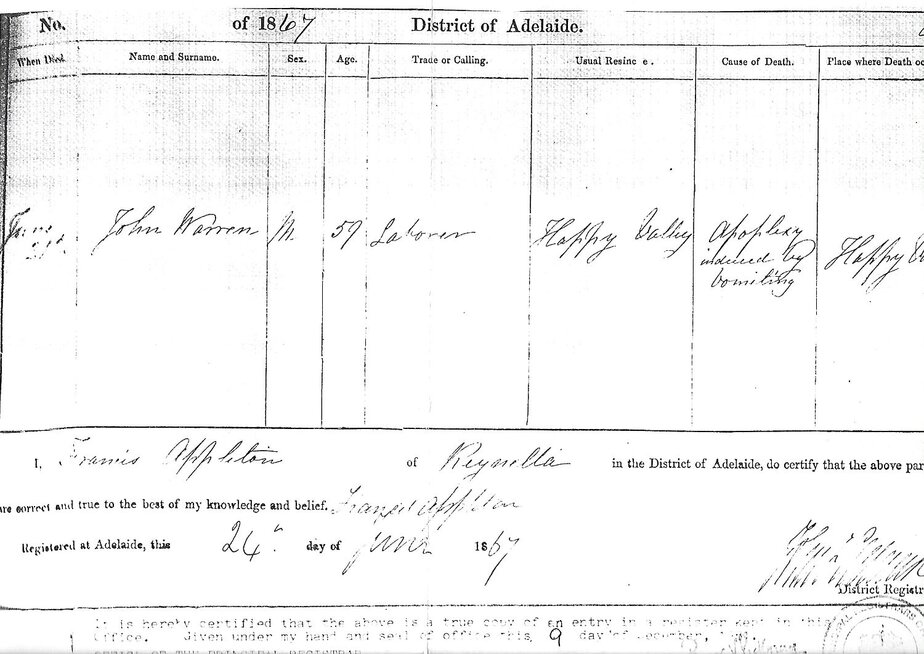 No. of 1867 District of Adelaide.
When Died. Name and Surname. Sex. Age. Trade or Calling. Usual Resince. Cause of Death. Place where Death oc
June John Warren M. 59 Laborer Happy Valley Apoplexy
induced by Happy
Vomiting
I, Francis Appleton of Reynella in the District of Adelaide, do certify that the above par
are correct and true to the best of my knowledge and belief. Francis Appleton
Registered at Adelaide, this 24th day of June 1867
District Registr
It is hereby certified that the above is a true copy of an entry in a register kept in this
Office. Given under my hand and seal of office this 9 day of
OFFICE OF THE PRINCIPAL REGISTRAR